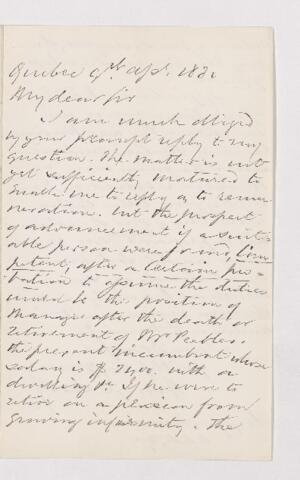 Quebec 9th Apl. 1881
My dear Sir
I am much obliged
by your prompt reply to my
question. The matter is not
yet sufficiently matured to
enable me to reply as to remu
neration. but the prospect
of advancement if a suit
able person were found, Com
petent, after a Certain pro
bation to assume the duties
would be the position of
Manager after the death or
retirement of Mr Peebles.
the present incumbent whose
salary is $ 2400. with a
dwelling or if he were to
retire on a pension from
growing infirmity. The